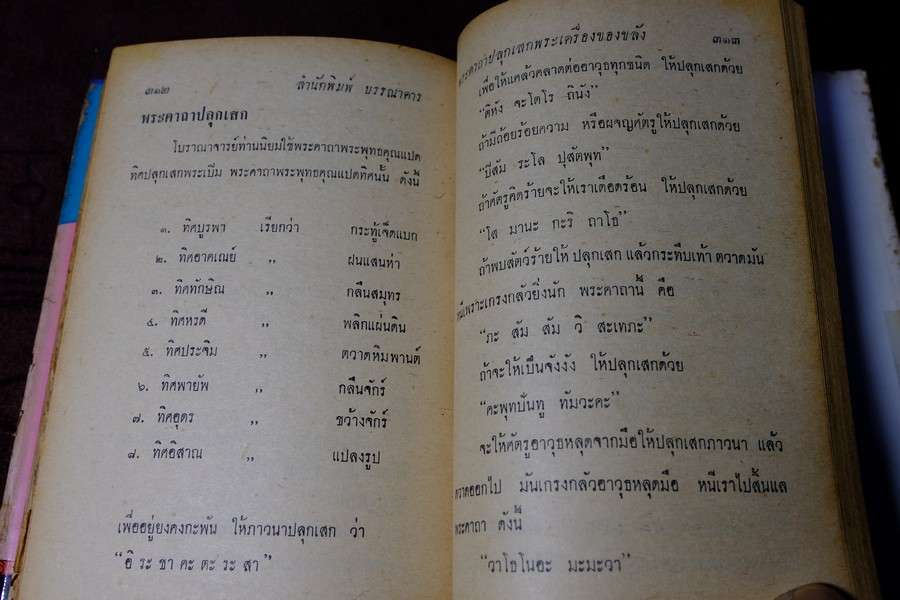 ๓๑๒ สำนักพิมพ์ บรรณาคาร
พระคาถาปลุกเสก
โบราณาจารย์ท่านนิยมใช้พระคาถาพระพุทธคุณแปด
ทิศปลุกเสกพระเบิ้ม พระคาถาพระพุทธคุณแปดทิศนั้น ดังนี้
๑. ทิศบูรพา เรียกว่า กระทู้เจ็ดแบก
๒. ทิศอาคเณย์ ,, ฝนแสนห่า
๓. ทิศทักษิณ ,, กลืนสมุทร
๔. ทิศหรดี ,, พลิกแผ่นดิน
๕. ทิศประจิม ,, ตวาดหิมพานต์
๖. ทิศพายัพ ,, กลืนจักร์
๗. ทิศอุดร ,, ขว้างจักร์
๘. ทิศอิสาณ ,, แปลงรูป
เพื่ออยู่ยงคงกะพัน ให้ภาวนาปลุกเสก ว่า
“อิ ระ ชา คะ ตะ ระ สา”
พระคาถาปลุกเสกพระเครื่องของขลัง ๓๑๓
เพื่อให้แคล้วคลาดต่ออาวุธทุกชนิด ให้ปลุกเสกด้วย
“ติหัง จะโตโร ถินัง”
ถ้ามีถ้อยร้อยความ หรือผจญศัตรูให้ปลุกเสกด้วย
“ปิสัม ระโล ปุสัตพุท”
ถ้าศัตรูคิดร้ายจะให้เราเดือดร้อน ให้ปลุกเสกด้วย
“โส มานะ กะริ ถาโธ”
ถ้าพบสัตว์ร้ายให้ ปลุกเสก แล้วกระทืบเท้า ตวาดมัน
หนีเพราะเกรงกลัวยิ่งนัก พระคาถานี้ คือ
“ภะ สัม สัม วิ สะเทภะ”
ถ้าจะให้เป็นจังงัง ให้ปลุกเสกด้วย
“คะพุทปันทู ทัมวะคะ”
จะให้ศัตรูอาวุธหลุดจากมือให้ปลุกเสกภาวนา แล้ว
ตวาดออกไป มันเกรงกลัวอาวุธหลุดมือ หนีเราไปสิ้นแล
พระคาถา ดังนี้
“วาโธโนอะ มะมะวา”